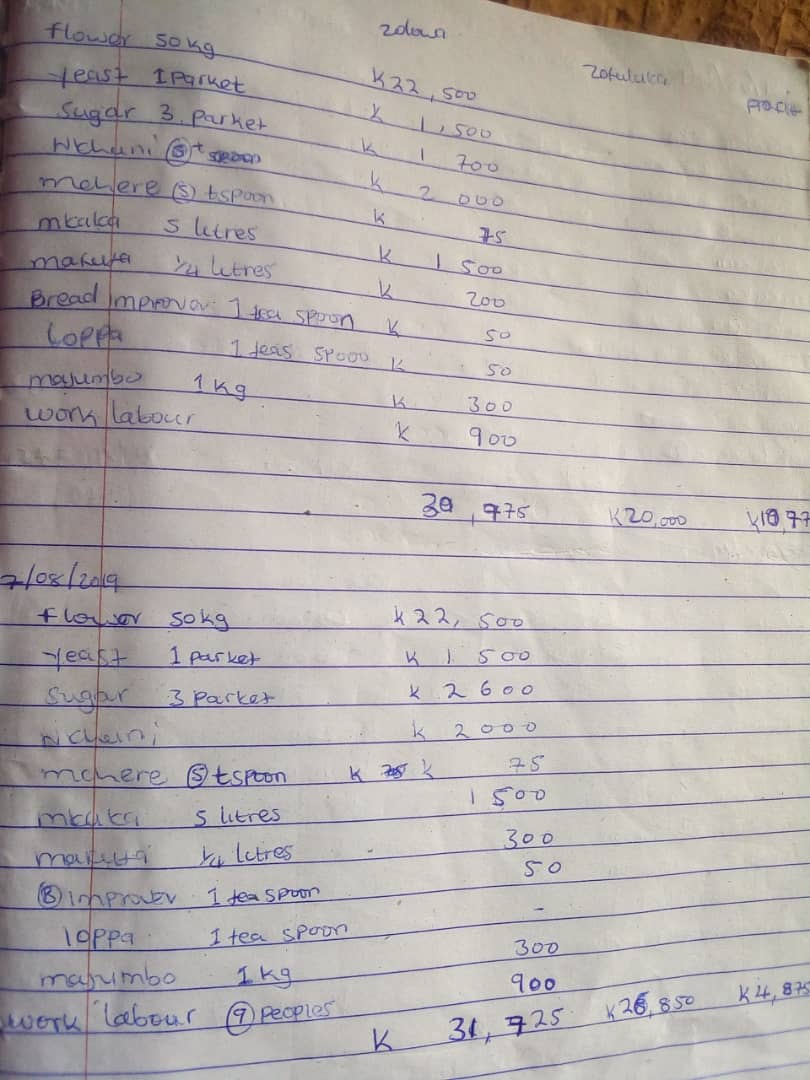 zdown zotuluka profit
flower 50kg K22,500
yeast 1 Parket K 1,500
Sugar 3 parket K 1 700
Nchuni ⑤ t spoon K 2 000
mchere ⑤ tspoon K 75
mkaka 5 litres K 1 500
mafuta 1/4 litres K 200
Bread improver 1 tea spoon K 50
Loppa 1 teas spoon K 50
majumbo 1 kg K 300
work labour K 900
30,775 K20,000 K10,77
7/08/2019
flower 50kg K22,500
yeast 1 parket K 1 500
Sugar 3 parket K 2 600
Nchuni K 2 000
mchere ⑤ tspoon K K 75
mkaka 5 litres 1 500
mafuta 1/4 letres 300
Ⓑ improver 1 tea spoon 50
loppa 1 tea spoon -
majumbo 1 kg 300
work labour ⑨ peoples 900
K 31,725 K26,850 K4,875